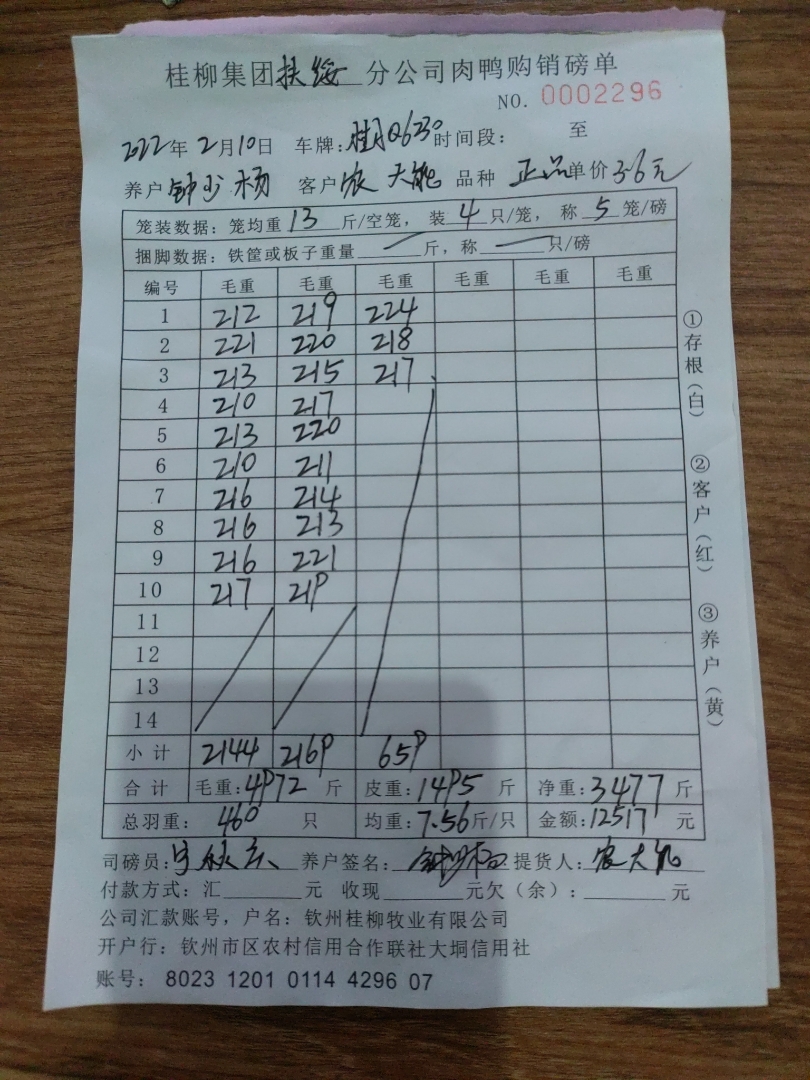 桂柳集团扶绥分公司肉鸭购销磅单
NO. 0002296
2022年2月10日 车牌: Q6230 时间段: 至
养户 钟少杨 客户 农大 品种 正品 单价 3.6元
笼装数据: 笼均重 13 斤/空笼, 装 4 只/笼, 称 5 笼/磅
捆脚数据: 铁筐或板子重量 — 斤, 称 — 只/磅
编号 毛重 毛重 毛重 毛重 毛重 毛重
1 212 219 224
2 221 220 218
3 213 215 217
4 210 217
5 213 220
6 210 211
7 216 214
8 216 213
9 216 221
10 217 219
11
12
13
14
小计 2144 2169 659
合计 毛重: 4972 斤 皮重: 1495 斤 净重: 3477 斤
总羽重: 460 只 均重: 7.56 斤/只 金额: 12517 元
司磅员: 养户签名: 钟少杨 提货人: 农大
付款方式: 汇 元 收现 元欠(余): 元
公司汇款账号, 户名: 钦州桂柳牧业有限公司
开户行: 钦州市区农村信用合作联社大垌信用社
账号: 8023 1201 0114 4296 07
①存根(白)
②客户(红)
③养户(黄)